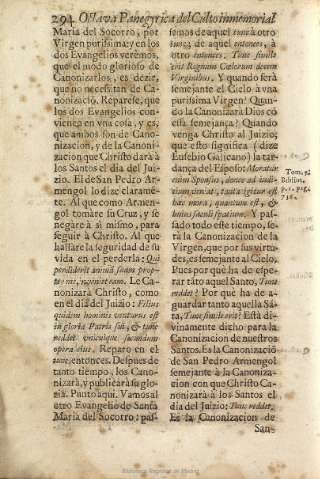 294 Octava Panegyrica del Culto inmemorial
Maria del Socorro, por
Virgen purissima; y en los
dos Evangelios verèmos,
que el modo glorioso de
Canonizarlos, es dezir,
que no necessitan de Ca-
nonizaciò. Reparese, que
los dos Evangelios con-
vienen en vna cosa, y es,
que ambos son de Cano-
nizacion, y de la Canoni-
zacion que Christo darà à
los Santos el dia del Jui-
zio. El de San Pedro Ar-
mengol lo dize claramẽ-
te. Al que como Armen-
gol tomàre su Cruz, y se
negàre à si mismo, para
seguir à Christo. Al que
hallàre la seguridad de su
vida en el perderla: Qui
perdiderit animã suam prop-
ter me, inveniet eam. Le Ca-
nonizarà Christo, como
en el dia del Juizio: Filius
quidem hominis venturus est
in gloria Patris sui, & tunc
reddet vnicuique secundum
opera eius. Reparo en el
tunc, entonces. Despues de
tanto tiempo, los Cano-
nizarà, y publicarà su glo-
ria. Punto aqui. Vamos al
otro Evangelio de Santa
Maria del Socorro: pas-
semos de aquel tunc à otro
tunc; de aquel entonces, à
otro entonces. Tunc simile
erit Regnum Cœlorum decem
Virginibus. Y quando serà
semejante el Cielo à vna
purissima Virgen? Quan-
do la Canonizarà Dios cõ
esta semejança? Quando
venga Christo al Juizio;
que esto significa (dize
Eusebio Galicano) la tar-
dança del Esposo: Moratur
Tom. 5.
Biblior.
Y pas-
sado todo este tiempo, se-
rà la Canonizacion de la
Virgen, que por sus virtu-
des, es semejante al Cielo.
Pues por què ha de espe-
rar tãto aquel Santo, Tunc
reddet? Por què ha de a-
guardar tanto aquella Sã-
ta, Tunc simile erit? Està di-
vinamente dicho para la
Canonizacion de nuestros
Santos. Es la Canonizaciò
de San Pedro Armengol
semejante à la Canoniza-
cion con que Christo Ca-
nonizarà à los Santos el
dia del Juizio: Tunc reddet.
Es la Canonizacion de
San-
Biblioteca Regional de Madrid